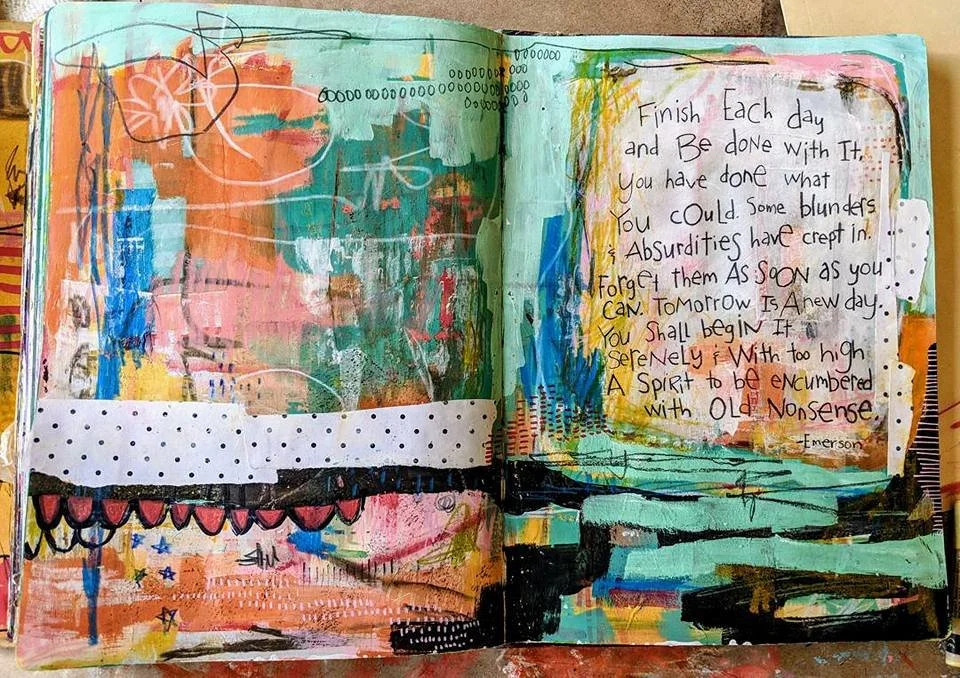 Finish Each day
and Be done with It.
You have done what
You could. Some blunders
& Absurdities have crept in.
Forget them As Soon as you
can. Tomorrow Is A new day.
You Shall begin It
Serenely & With too high
A Spirit to be encumbered
with Old Nonsense.
-Emerson